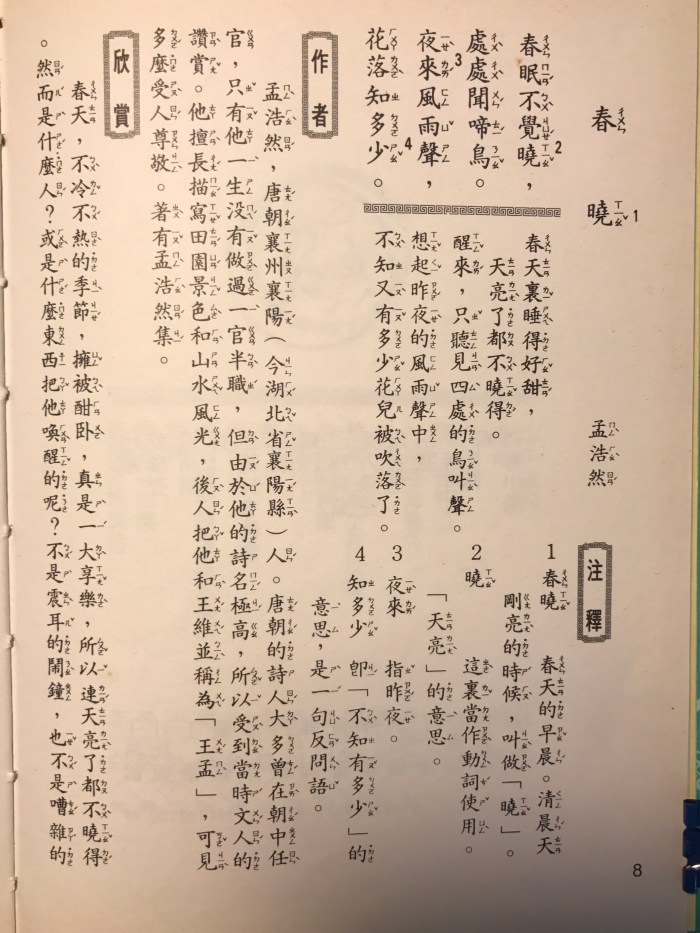 春曉1
孟浩然
春眠不覺曉，2
處處聞啼鳥。3
夜來風雨聲，
花落知多少。4
春天裏睡得好甜，
天亮了都不曉得。
醒來，只聽見四處的鳥叫聲。
想起昨夜的風雨聲中，
不知又有多少花兒被吹落了。
注釋
1 春曉 春天的早晨。清晨天
剛亮的時候，叫做「曉」。
2 曉 這裏當作動詞使用。
「天亮」的意思。
3 夜來 指昨夜。
4 知多少 卽「不知有多少」的
意思，是一句反問語。
作者
孟浩然，唐朝襄州襄陽（今湖北省襄陽縣）人。唐朝的詩人大多曾在朝中任
官，只有他一生没有做過一官半職，但由於他的詩名極高，所以受到當時文人的
讚賞。他擅長描寫田園景色和山水風光，後人把他和王維並稱為「王孟」，可見
多麼受人尊敬。著有孟浩然集。
欣賞
春天，不冷不熱的季節，擁被酣卧，真是一大享樂，所以連天亮了都不曉得
。然而是什麼人？或是什麼東西把他喚醒的呢？不是震耳的鬧鐘，也不是嘈雜的
8